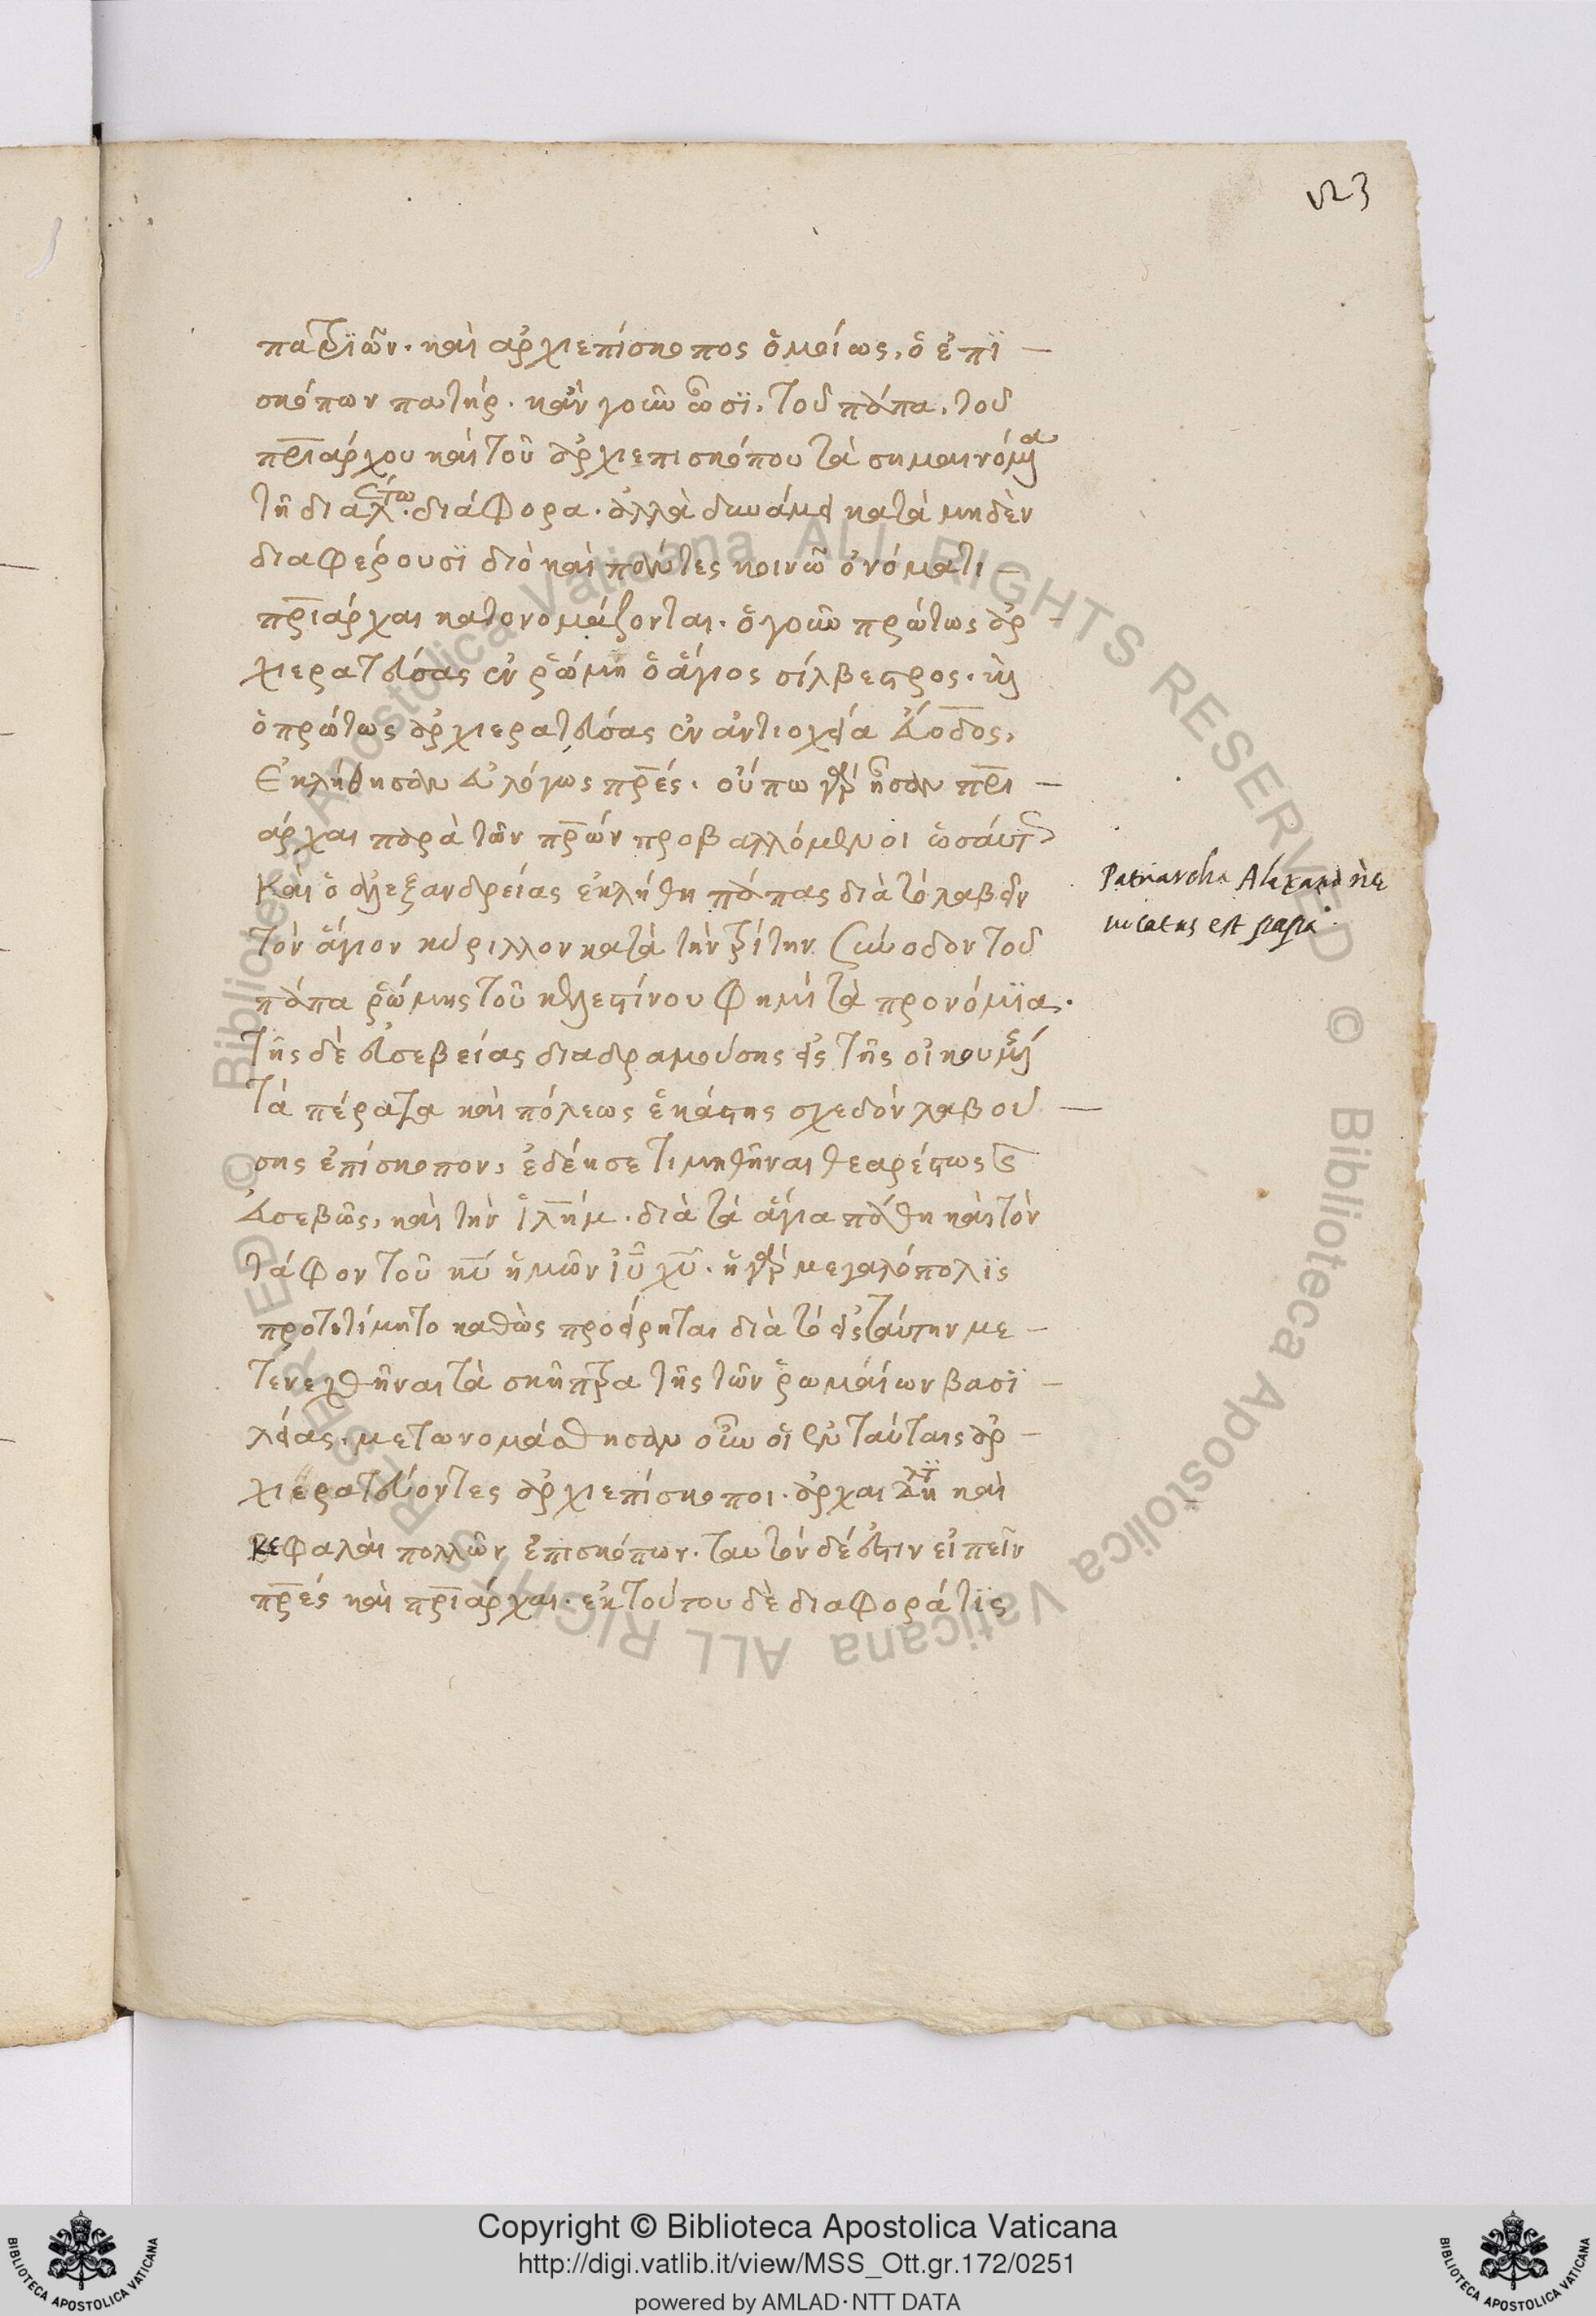 123
πατριῶν. καὶ ἀρχιεπίσκοπος ὁμοίως, ὁ ἐπϊ –
σκόπων πατήρ. κἂν γοῦν ὦσϊ, τοῦ πάπα, τοῦ
πριάρχου καὶ τοῦ ἀρχιεπισκόπου τὰ σημαινόμα
τῆ διαλ. διάφορα. ἀλλὰ δυνάμει κατὰ μηδὲν
διαφέρουσϊ διὸ καὶ πάντες κοινῶ ὀνόματι –
πριάρχαι κατονομάζονται. ὁ γοῦν πρώτως ἀρ
χιερατεύσας ἐν ῥώμη ὁ ἅγιος σίλβεστρος. καὶ
ὁ πρώτως ἀρχιερατεύσας ἐν ἀντιοχεία εὔοδος,
ἐκλήθησαν εὐλόγως πρές. οὔπω γὰρ ἦσαν πρι –
άρχαι παρὰ τῶν πρών προβαλλόμενοι ὡσάυτως
Καὶ ὁ ἀλεξανδρείας ἐκλήθη πάπας διὰ τὸ λαβεῖν
τὸν ἅγιον κύριλλον κατὰ τὴν τρίτην σύνοδον τοῦ
πάπα ῥώμης τοῦ κελεστίνου φημὶ τὰ προνόμϊα.
τῆς δὲ εὐσεβείας διαδραμούσης εἰς τῆς οἰκουμ
τὰ πέρατα καὶ πόλεως ἑκάστης σχεδὸν λαβού –
σης ἐπίσκοπον, ἐδέησε τιμηθῆναι θεαρέστως
εὐσεβῶς, καὶ τὴν ἱλήμ. διὰ τὰ ἅγια πάθη καὶ τὸν
τάφον τοῦ κυ ἡμῶν ἰυ χυ. ἡ γὰρ μεγαλόπολϊς
προτετίμητο καθὼς προείρηται διὰ τὸ εἰς ταύτην με –
τενεχθῆναι τὰ σκῆπτρα τῆς τῶν ῥωμαίων βασϊ –
λείας. μετωνομάσθησαν οὖν οἱ ἐν ταύταις ἀρ –
χιερατεύοντες ἀρχιεπίσκοποι. ἀρχαι καὶ
κεφαλαὶ πολλῶν ἐπισκόπων. ταυτὸν δέ ἐστιν εἰπεῖν
πρές καὶ πριάρχαι. ἐκ τούτου δὲ διαφορά τϊς
Patriarcha Alexandriae
uocatus est papa.
Copyright © Biblioteca Apostolica Vaticana
http://digi.vatlib.it/view/MSS_Ott.gr.172/0251
powered by AMLAD·NTT DATA
© Biblioteca Apostolica Vaticana ALL RIGHTS RESERVED
© Biblioteca Apostolica Vaticana ALL RIGHTS RESERVED
BIBLIOTECA APOSTOLICA VATICANA
BIBLIOTECA APOSTOLICA VATICANA